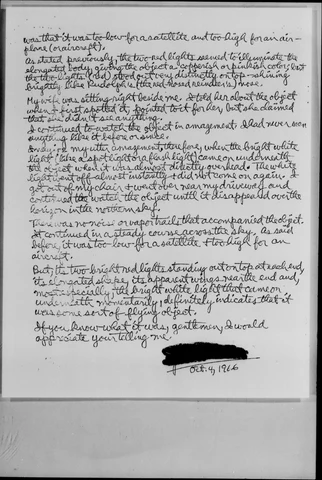 was that it was too low for a satellite and too high for an air-
plane (or aircraft).
As stated previously, the two red lights seemed to illuminate the
elongated body, giving the object a copperish or pinkish color; but
the two lights (red) stood out very distinctly on top - shining
brightly like Rudolph's (the red-nosed reindeer's) nose.
My wife was sitting right beside me. I told her about the object
when I first spotted it, pointed to it for her, but she claimed
that she didn't see anything.
I continued to watch the object in amazement. I had never seen
anything like it before or since.
my utter amazement, therefore, when the bright white
light (like a spotlight or flash light) came on underneath
the object when it was almost directly overhead. The white
light went off almost instantly & did not come on again. I
got out of my chair & went over near my driveway and
continued to watch the object until it disappeared over the
horizon in the northern sky.
There was no noise or vapor trails that accompanied the object.
It continued in a steady course across the sky. As said
before, it was too low for a satellite & too high for an
aircraft.
But, its two bright red lights standing out on top at each end,
its elongated shape, its apparent wings near the end and,
most especially, the bright white light that came on
underneath momentarily, definitely indicates that it
was some sort of flying object.
If you know what it was, gentlemen, I would
appreciate your telling me.
Oct. 4, 1966